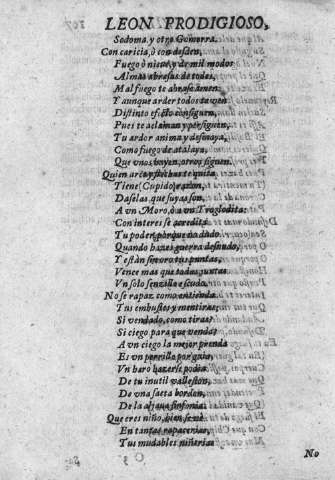 LEON PRODIGIOSO,
Sodoma, y otro Gomorra.
Con caricia, ò con desden,
Fuego ò nieue, y de mil modos
Almas abrasas de todos,
Mal fuego te abrase amen:
Y aunque arder todos te ven
Distinto efecto consiguen,
Pues te aclaman y persiguen,
Tu ardor anima y desmaya,
Como fuego de atalaya,
Que vnos huyen, otros siguen.
Quien arco y flechas te quita
Tiene (Cupido) razon,
Daselas, que suyas son,
A vn Moro, ò a vn Troglodita:
Con interes se acredita
Tu poder, porque no dudo
Quando hazes guerra desnudo,
Y estàn de oro tus puntas,
Vence mas que todas juntas
Vn solo senzillo escudo.
No se rapaz como entienda
Tus embustes y mentiras;
Si vendado, como tiras?
Si ciego para que venda?
A vn ciego la mejor prenda
Es vn perrillo por guia,
Vn haro hazerse podia
De tu inutil valleston,
De vna saeta bordon,
De la aljaua sinfonia.
Que eres niño, bien se vè
En tantas rapacerias,
Tus mudables niñerias
No